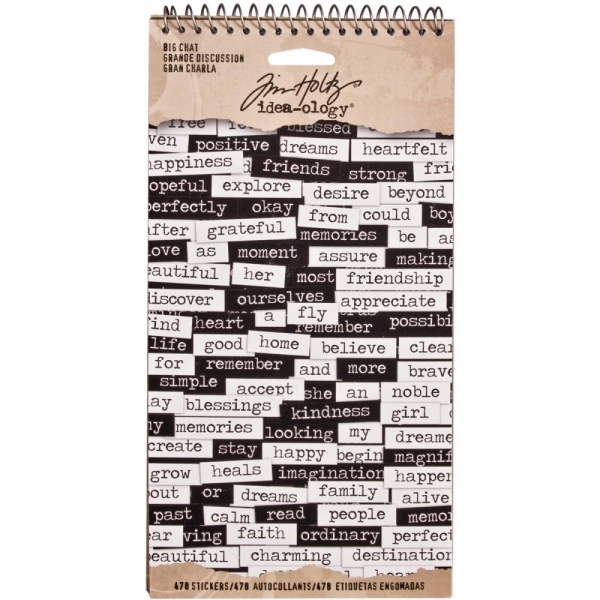 BIG CHAT
GRANDE DISCUSSION
GRAN CHARLA
Tim Holtz
idea-ology®
free blessed
ven positive dreams heartfelt
happiness friends strong frie
opeful explore desire beyond
perfectly okay from could boy
after grateful memories be as
love as moment assure making
eautiful her most friendship
discover ourselves appreciate
find heart a fly remember possibi
life good home believe clear
for remember and more brave
simple accept she an noble
ay blessings kindness girl
my memories looking my dreame
create stay happy begin magnif
grow heals imagination happen
out or dreams family alive
past calm read people memo
ear ving faith ordinary perfect
eautiful charming destination
478 STICKERS/478 AUTOCOLLANTS/478 ETIQUETAS ENGOMADAS